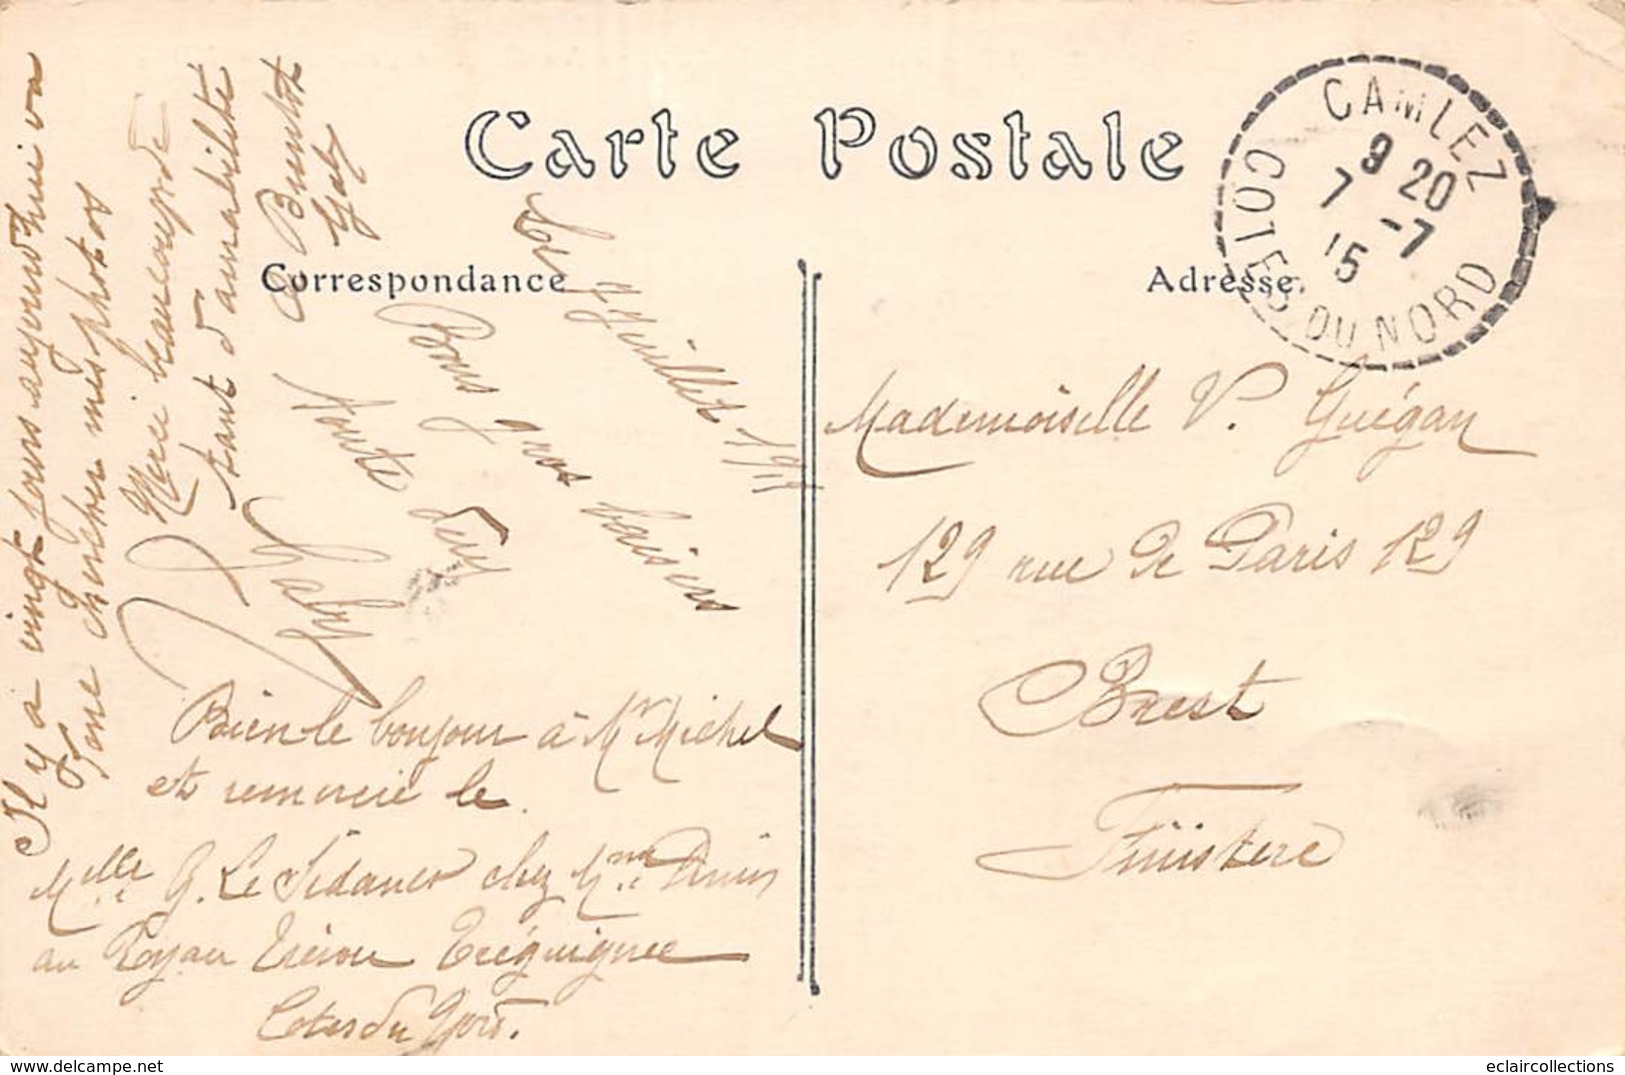 Carte Postale
Correspondance
Adresse.
CAMLEZ
9 20
7 -7
15
COTES DU NORD
Le 7 Juillet 191
Bons gros baisers
Toute
Gaby
Il y a vingt jours aujourd'hui va
chercher mes photos
Merci beaucoup de
tant d'amabilité
a Bientot
Gaby
Bien le bonjour à Mr Michel
et remercie le.
Melle G. Le Sidaner chez Mme
au Royau Trévou Tréguignec
Cotes du Nord.
Mademoiselle V. Guégan
129 rue de Paris 129
Brest
Finistère
eclaircollections